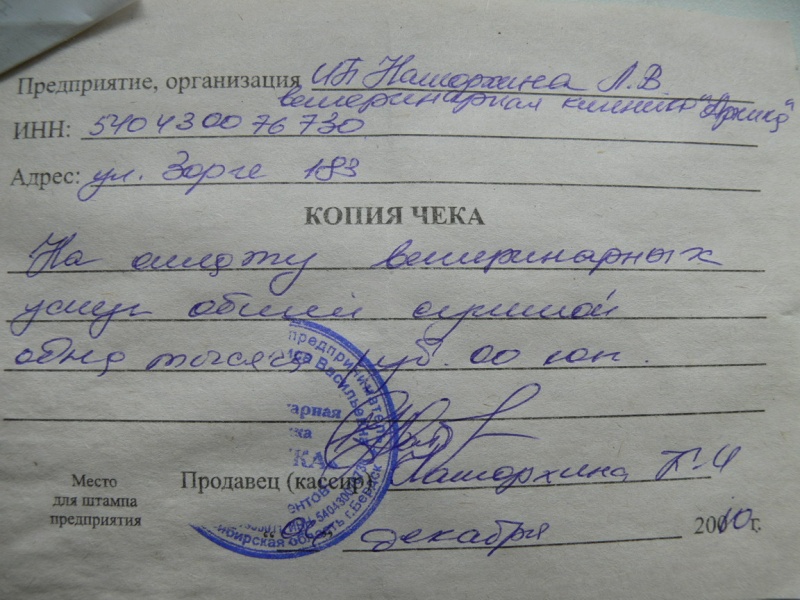 Предприятие, организация ИП Нашорхина Л.В.
ветеринарная клиника
ИНН: 540430076730
Адрес: ул. Зорге 183
КОПИЯ ЧЕКА
На оплату ветеринарных
услуг общей суммой
одна тысяча руб. 00 коп.
предпринимател
Василье
арная
ка
КА
540430
ибирская область г. Бердск
Место
для штампа
предприятия
Продавец (кассир) Нашорхина
декабря 2010 г.